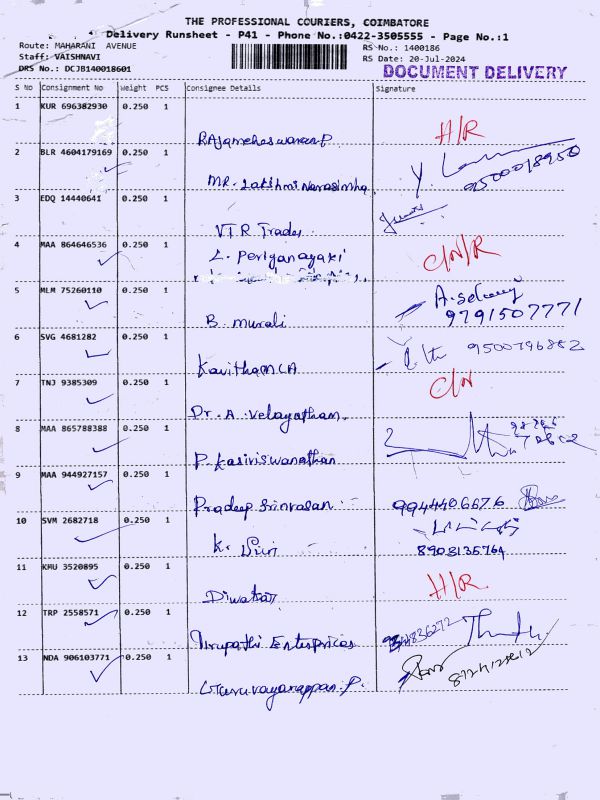 THE PROFESSIONAL COURIERS, COIMBATORE
Delivery Runsheet - P41 - Phone No.:0422-3505555 - Page No.:1
Route: MAHARANI AVENUE
RS No.: 1400186
Staff: VAISHNAVI
RS Date: 20-Jul-2024
DRS No.: DCJB140018601
DOCUMENT DELIVERY
S No Consignment No Weight PCS Consignee Details Signature
1 KUR 696382930 0.250 1
H/R
2 BLR 4604179169 0.250 1
9500018950
MR. Lakshmi Narasimha
3 EDQ 14440641 0.250 1
VTR Trades
4 MAA 864646536 0.250 1
L. Periyanayaki
C/N/R
5 MLM 75260110 0.250 1
9791507771
B. murali
6 SVG 4681282 0.250 1
9500796882
Kavitham CA
7 TNJ 9385309 0.250 1
C/N
Dr. A. Velayutham.
8 MAA 865788388 0.250 1
P. Kasiviswanathan
9 MAA 944927157 0.250 1
Pradeep Srinivasan
9944406676
10 SVM 2682718 0.250 1
8903135764
11 KMU 3520895 0.250 1
H/R
Diwakar
12 TRP 2558571 0.250 1
Tirupathi Enterprices
13 NDA 906103771 0.250 1
Guruvayurappan.P.